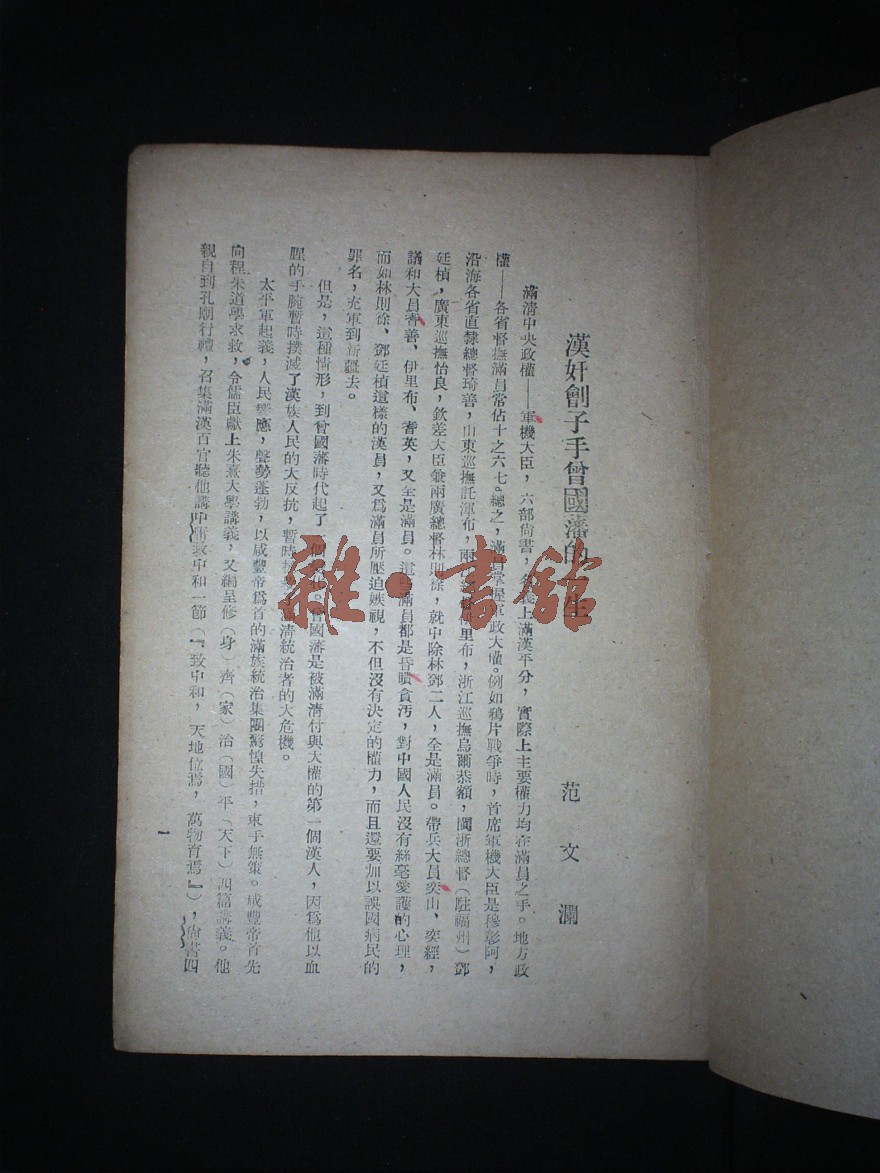 漢奸劊子手曾國藩的一生
范文瀾
滿清中央政權——軍機大臣，六部尙書，上滿漢平分，實際上主要權力均在滿員之手。地方政
權——各省督撫滿員常佔十之六七。總之，滿員掌握軍政大權。例如鴉片戰爭時，首席軍機大臣是穆彰阿，
沿海各省直隸總督琦善，山東巡撫託渾布，兩伊里布，浙江巡撫烏爾恭額，閩浙總督（駐福州）鄧
廷楨，廣東巡撫怡良，欽差大臣兼兩廣總督林則徐，就中除林鄧二人，全是滿員。帶兵大員奕山、奕經，
議和大員耆善、伊里布、耆英，又全是滿員。這滿員都是昏聵貪污，對中國人民沒有絲毫愛護的心理，
而如林則徐、鄧廷楨這樣的漢員，又爲滿員所壓迫嫉視，不但沒有決定的權力，而且還要加以誤國病民的
罪名，充軍到新疆去。
但是，這種情形，到曾國藩時代起了變化。曾國藩是被滿淸付與大權的第一個漢人，因爲他以血
腥的手腕暫時撲滅了漢族人民的大反抗，暫時滿淸統治者的大危機。
太平軍起義，人民響應，聲勢蓬勃，以咸豐帝爲首的滿族統治集團驚惶失措，束手無策。咸豐帝首先
向程朱道學求救，令儒臣獻上朱熹大學講義，又編呈修（身）齊（家）治（國）平（天下）四篇講義。他
親自到孔廟行禮，召集滿漢百官聽他講中庸致中和一節（『致中和，天地位焉，萬物育焉』），尙書四
一
雜·書館